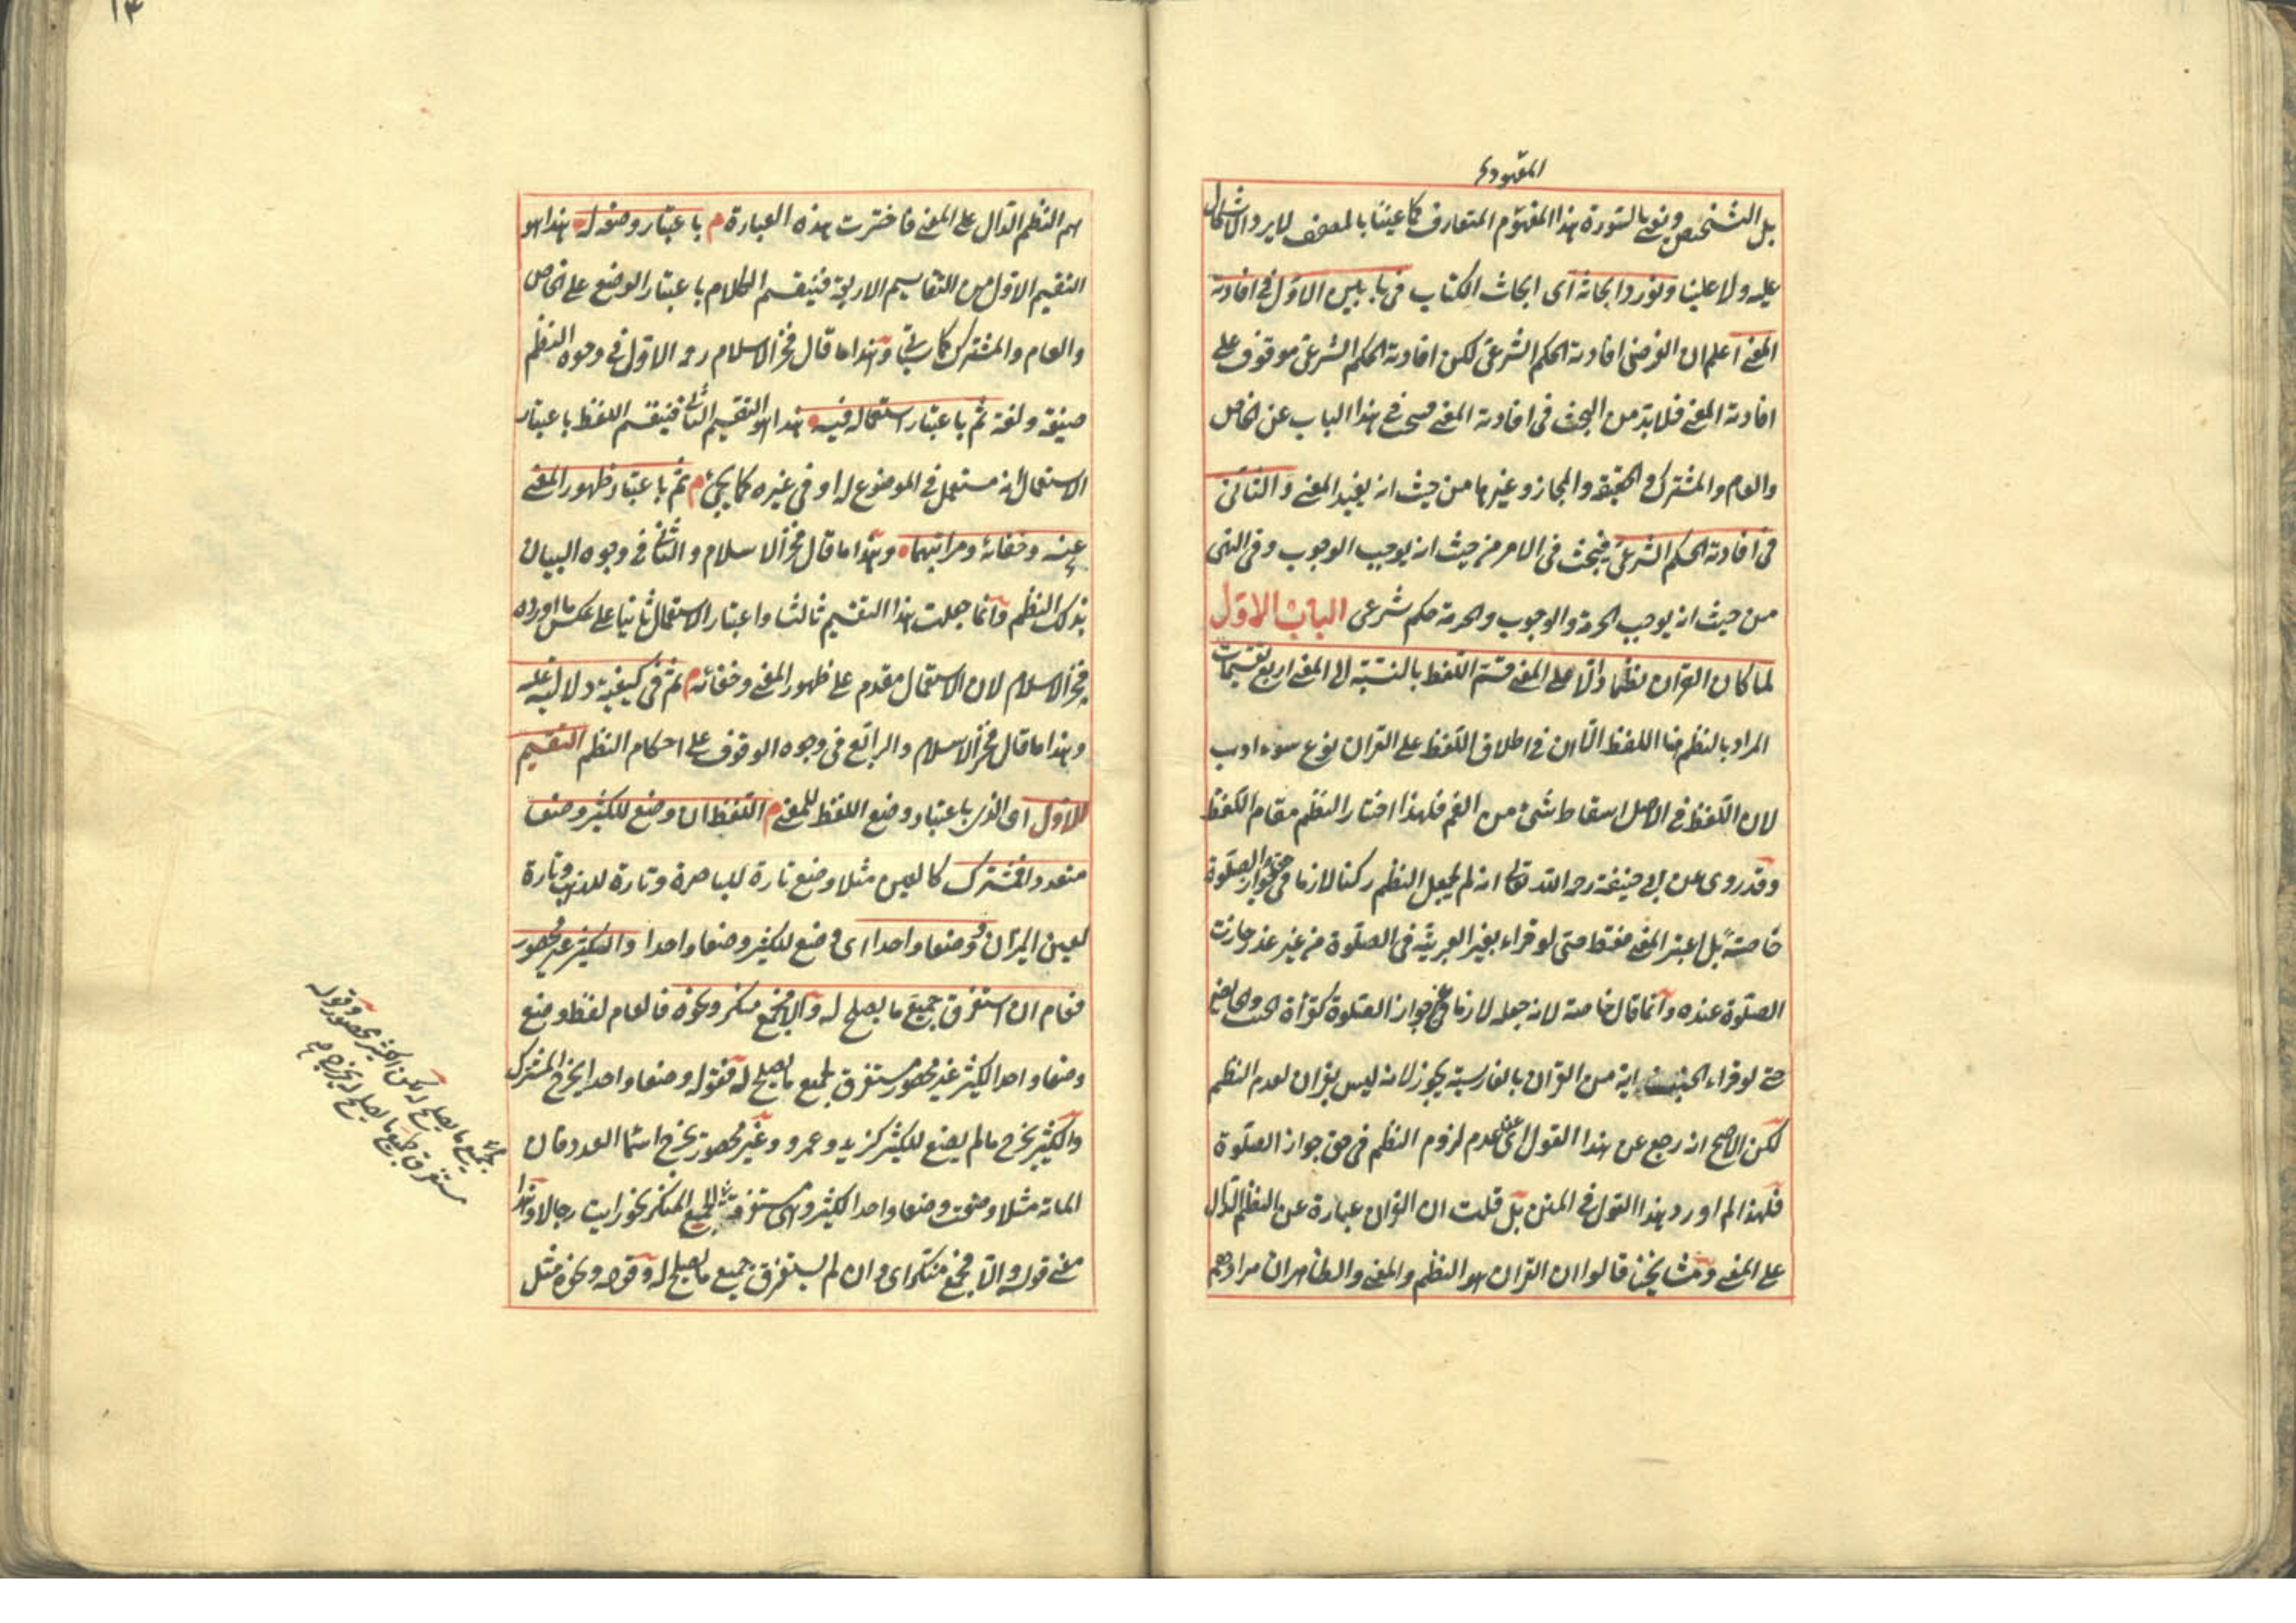 المعهود
بل التشخيص ونعنى بالسورة هذا المفهوم المتعارف كما عنينا بالمصحف لا يرد الاشكال
عليه ولا علينا ونورد ابحاثه اى ابحاث الكتاب فى بابين الاول فى افادته
المعنى اعلم ان الغرض افادته الحكم الشرعى لكن افادته الحكم الشرعى موقوف على
افادته المعنى فلا بد من البحث فى افادته المعنى فيبحث فى هذا الباب عن الخاص
والعام والمشترك والحقيقة والمجاز وغيرها من حيث انه يفيد المعنى والثانى
فى افادته الحكم الشرعى فيبحث فى الامر من حيث انه يوجب الوجوب وفى النهى
من حيث انه يوجب الحرمة والوجوب والحرمة حكم شرعى الباب الاول
لما كان القران نظما دالا على المعنى قسم اللفظ بالنسبة الى المعنى اربع تقسيمات
المراد بالنظم هنا اللفظ الا ان فى اطلاق اللفظ على القران نوع سوء ادب
لان اللفظ فى الاصل اسقاط شئ من الفم فلهذا اختار النظم مقام اللفظ
وقد روى عن ابى حنيفة رحمه الله تعالى انه لم يجعل النظم ركنا لازما فى حق جواز الصلوة
خاصة بل اعتبر المعنى فقط حتى لو قراء بغير العربية فى الصلوة من غير عذر جازت
الصلوة عنده وانما قال خاصة لانه جعله لازما فى غير جواز الصلوة كقرأة الجنب والحايض
حتى لو قراء الجنب اية من القران بالفارسية يجوز لانه ليس بقران لعدم النظم
لكن الاصح انه رجع عن هذا القول اى عن عدم لزوم النظم فى حق جواز الصلوة
فلهذا لم اورد هذا القول فى المتن بل قلت ان القران عبارة عن النظم الدال
على المعنى ومشايخنا قالوا ان القران هو النظم والمعنى والظاهر ان مرادهم
هم النظم الدال على المعنى فاخترت هذه العبارة م باعتبار وضعه له هذا هو
التقسيم الاول من التقاسيم الاربعة فينقسم الكلام باعتبار الوضع على الخاص
والعام والمشترك كما سيأتى وهذا ما قال فخر الاسلام رحمه الاول فى وجوه النظم
صيغة ولغة ثم باعتبار استعماله فيه هذا هو التقسيم الثانى فينقسم اللفظ باعتبار
الاستعمال انه مستعمل فى الموضوع له او فى غيره كما يجئ م ثم باعتبار ظهور المعنى
عنه وخفائه ومراتبهما وهذا ما قال فخر الاسلام والثانى فى وجوه البيان
بذلك النظم وانما جعلت هذا التقسيم ثالثا واعتبار الاستعمال ثانيا على عكس ما اورده
فخر الاسلام لان الاستعمال مقدم على ظهور المعنى وخفائه م ثم فى كيفية دلالته عليه
وهذا ما قال فخر الاسلام والرابع فى وجوه الوقوف على احكام النظم التقسيم
الاول اى الذى باعتبار وضع اللفظ للمعنى م اللفظ ان وضع للكثير وضعا
متعددا فمشترك كالعين مثلا وضع تارة للباصرة وتارة للذهب وتارة
لعين الميزان او وضعا واحدا اى وضع للكثير وضعا واحدا والكثير غير محصور
فعام ان استغرق جميع ما يصلح له والا فجمع منكر ونحوه فالعام لفظ وضع
وضعا واحدا لكثير غير محصور مستغرق لجميع ما يصلح له فقوله وضعا واحدا يخرج المشترك
والكثير يخرج ما لم يوضع للكثير كزيد وعمرو وغير محصور يخرج اسماء العدد فان
المائة مثلا وضعت وضعا واحدا لكثير وهى مستغرقة الجمع المنكر نحو رايت رجالا وهذا
معنى قوله والا فجمع منكر اى وان لم يستغرق جميع ما يصلح له وقوله ونحوه مثل
جميع ما يصلح له لكن الكثير محصور وقوله
مستغرق لجميع ما يصلح له يخرج